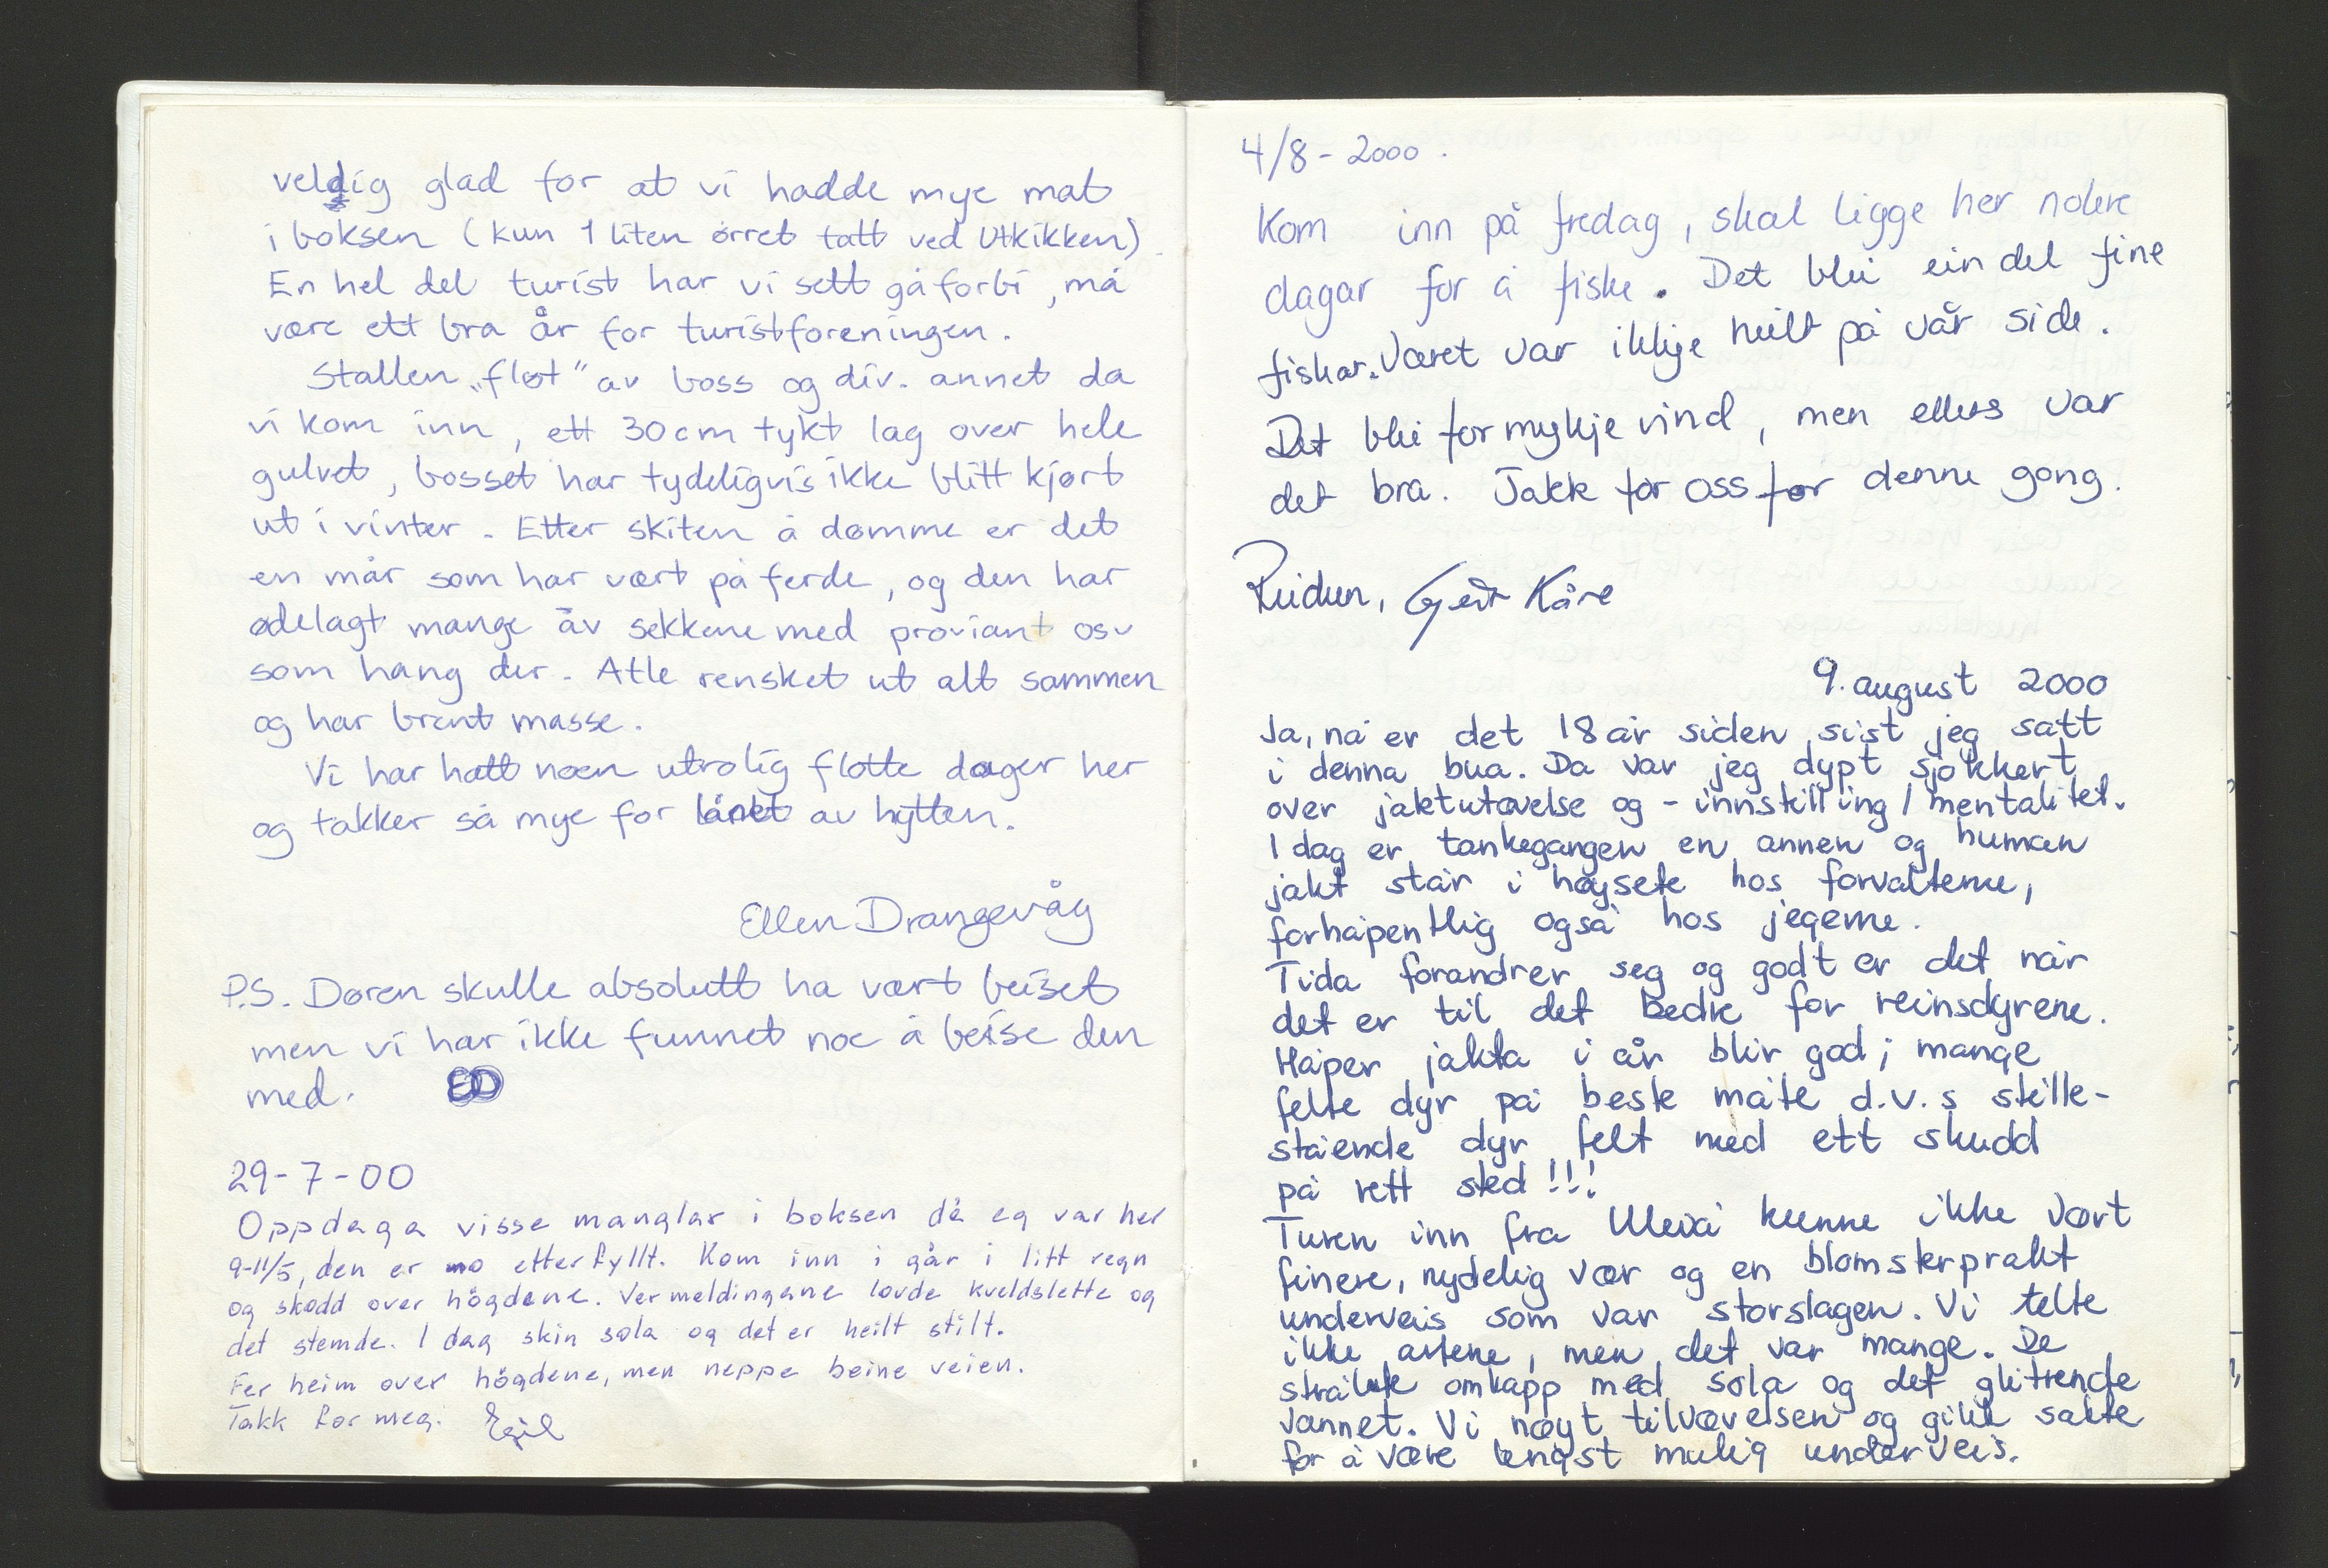 veldig glad for at vi hadde mye mat
i boksen (kun 1 liten ørret tatt ved Utkikken).
En hel del turist har vi sett gå forbi, må
være ett bra år for turistforeningen.
Stallen „fløt" av boss og div. annet da
vi kom inn, ett 30cm tykt lag over hele
gulvet, bosset har tydeligvis ikke blitt kjørt
ut i vinter. Etter skiten å dømme er det
en mår som har vært på ferde, og den har
ødelagt mange av sekkene med proviant osv
som hang der. Atle rensket ut alt sammen
og har brent masse.
Vi har hatt noen utrolig flotte dager her
og takker så mye for lånet av hytten.
Ellen Drangevåg
P.S. Døren skulle absolutt ha vært beiset
men vi har ikke funnet noe å beise den
med. ED
29-7-00
Oppdaga visse manglar i boksen då eg var her
9-11/5, den er no etterfyllt. Kom inn i går i litt regn
og skodd over högdene. Vermeldingane lovde kveldslette og
det stemde. I dag skin sola og det er heilt stilt.
Fer heim over högdene, men neppe beine veien.
Takk for meg. Egil
4/8-2000.
Kom inn på fredag, skal ligge her nokre
dagar for å fiske. Det blei ein del fine
fiskar. Været var ikkje heilt på vår side.
Det blei for mykje vind, men ellers var
det bra. Takk for oss for denne gong.
Reidun, Gert Kåre
9. august 2000
Ja, nå er det 18 år siden sist jeg satt
i denna bua. Da var jeg dypt sjokkert
over jaktutøvelse og -innstilling / mentalitet.
I dag er tankegangen en annen og human
jakt står i høysete hos forvalterne,
forhåpentlig også hos jegerne.
Tida forandrer seg og godt er det når
det er til det bedre for reinsdyrene.
Håper jakta i år blir god; mange
felte dyr på beste måte d.v.s stille-
stående dyr felt med ett skudd
på rett sted!!!
Turen inn fra Ulevå kunne ikke vært
finere, nydelig vær og en blomsterprakt
underveis som var storslagen. Vi telte
ikke artene, men det var mange. De
strålte omkapp med sola og det glitrende
vannet. Vi nøyt tilværelsen og gikk sakte
for å være lengst mulig underveis.